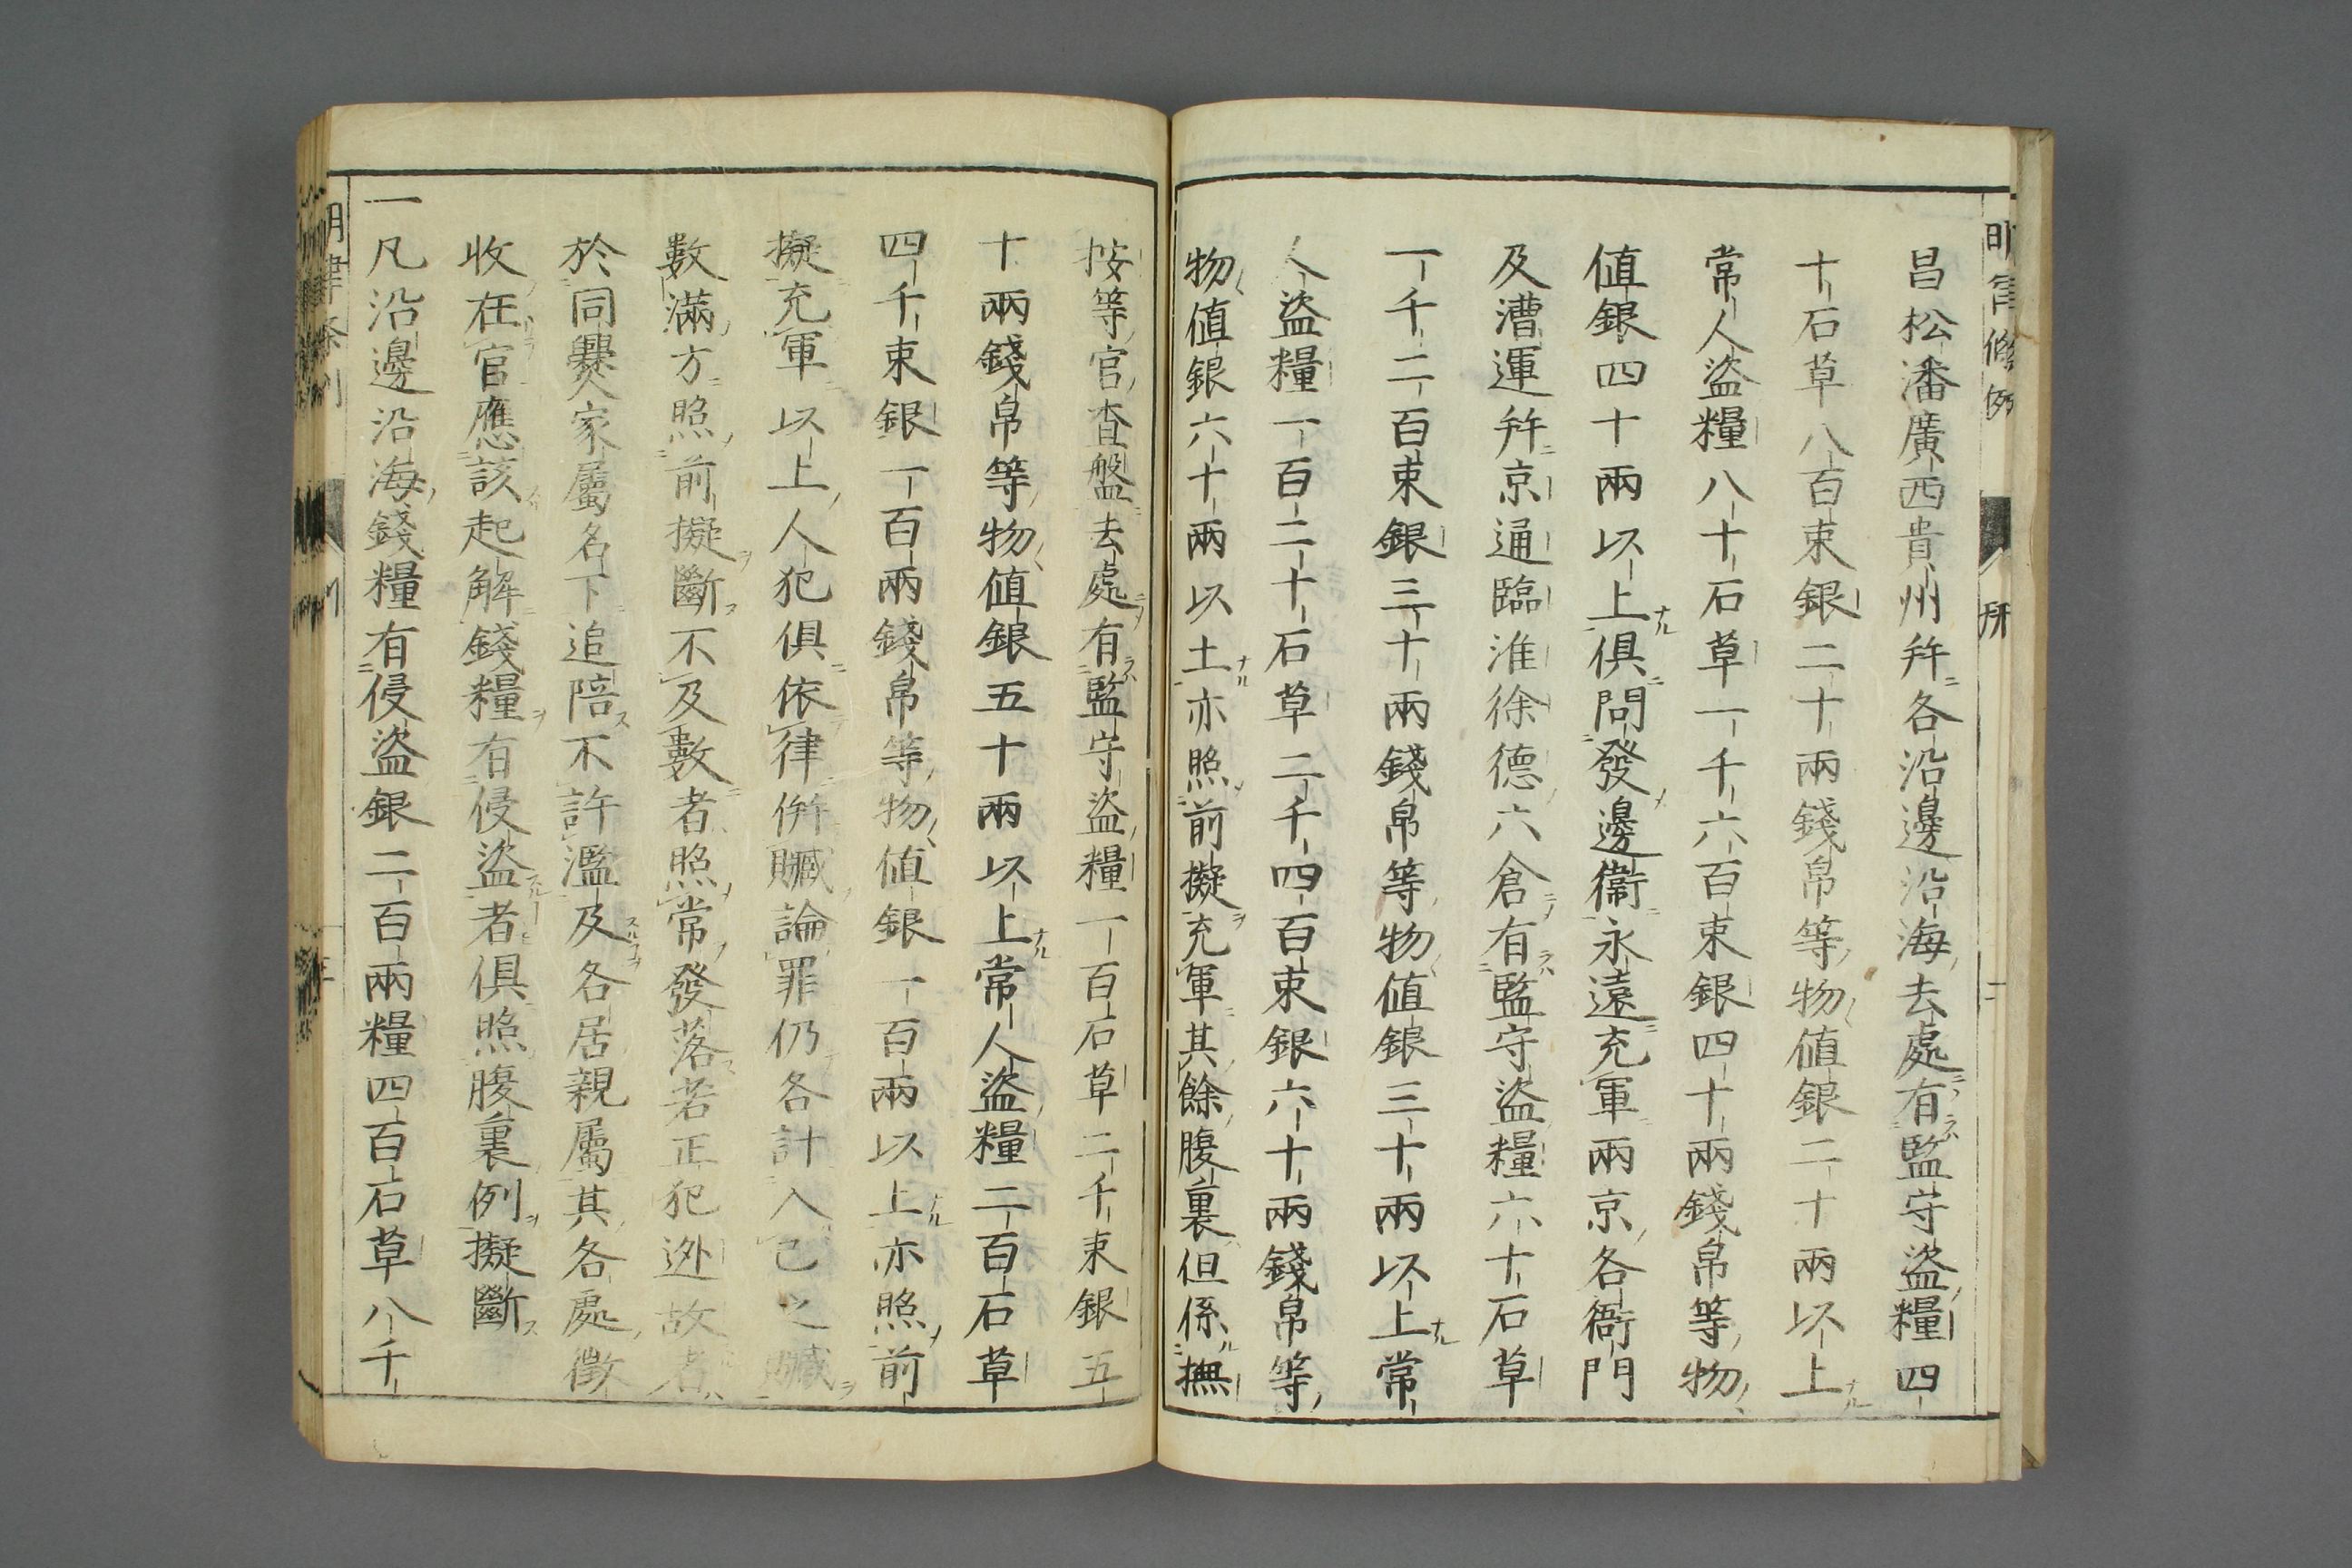 昌松潘廣西貴州幷各沿邊沿海去處有監守盜糧四
十石草八百束銀二十兩錢帛等物值銀二十兩以上
常人盜糧八十石草一千六百束銀四十兩錢帛等物
值銀四十兩以上俱問發邊衞永遠充軍兩京各衙門
及漕運幷京通臨淮徐德六倉有監守盜糧六十石草
一千二百束銀三十兩錢帛等物值銀三十兩以上常
人盜糧一百二十石草二千四百束銀六十兩錢帛等
物值銀六十兩以土亦照前擬充軍其餘腹裏但係撫
按等官查盤去處有監守盜糧一百石草二千束銀五
十兩錢帛等物值銀五十兩以上常人盜糧二百石草
四千束銀一百兩錢帛等物值銀一百兩以上亦照前
擬充軍以上人犯俱依律併贓論罪仍各計入己之贓
數滿方照前擬斷不及數者照常發落若正犯逃故者
於同爨家屬名下追陪不許濫及各居親屬其各處徵
收在官應該起解錢糧有侵盜者俱照腹裏例擬斷
一凡沿邊沿海錢糧有侵盜銀二百兩糧四百石草八千